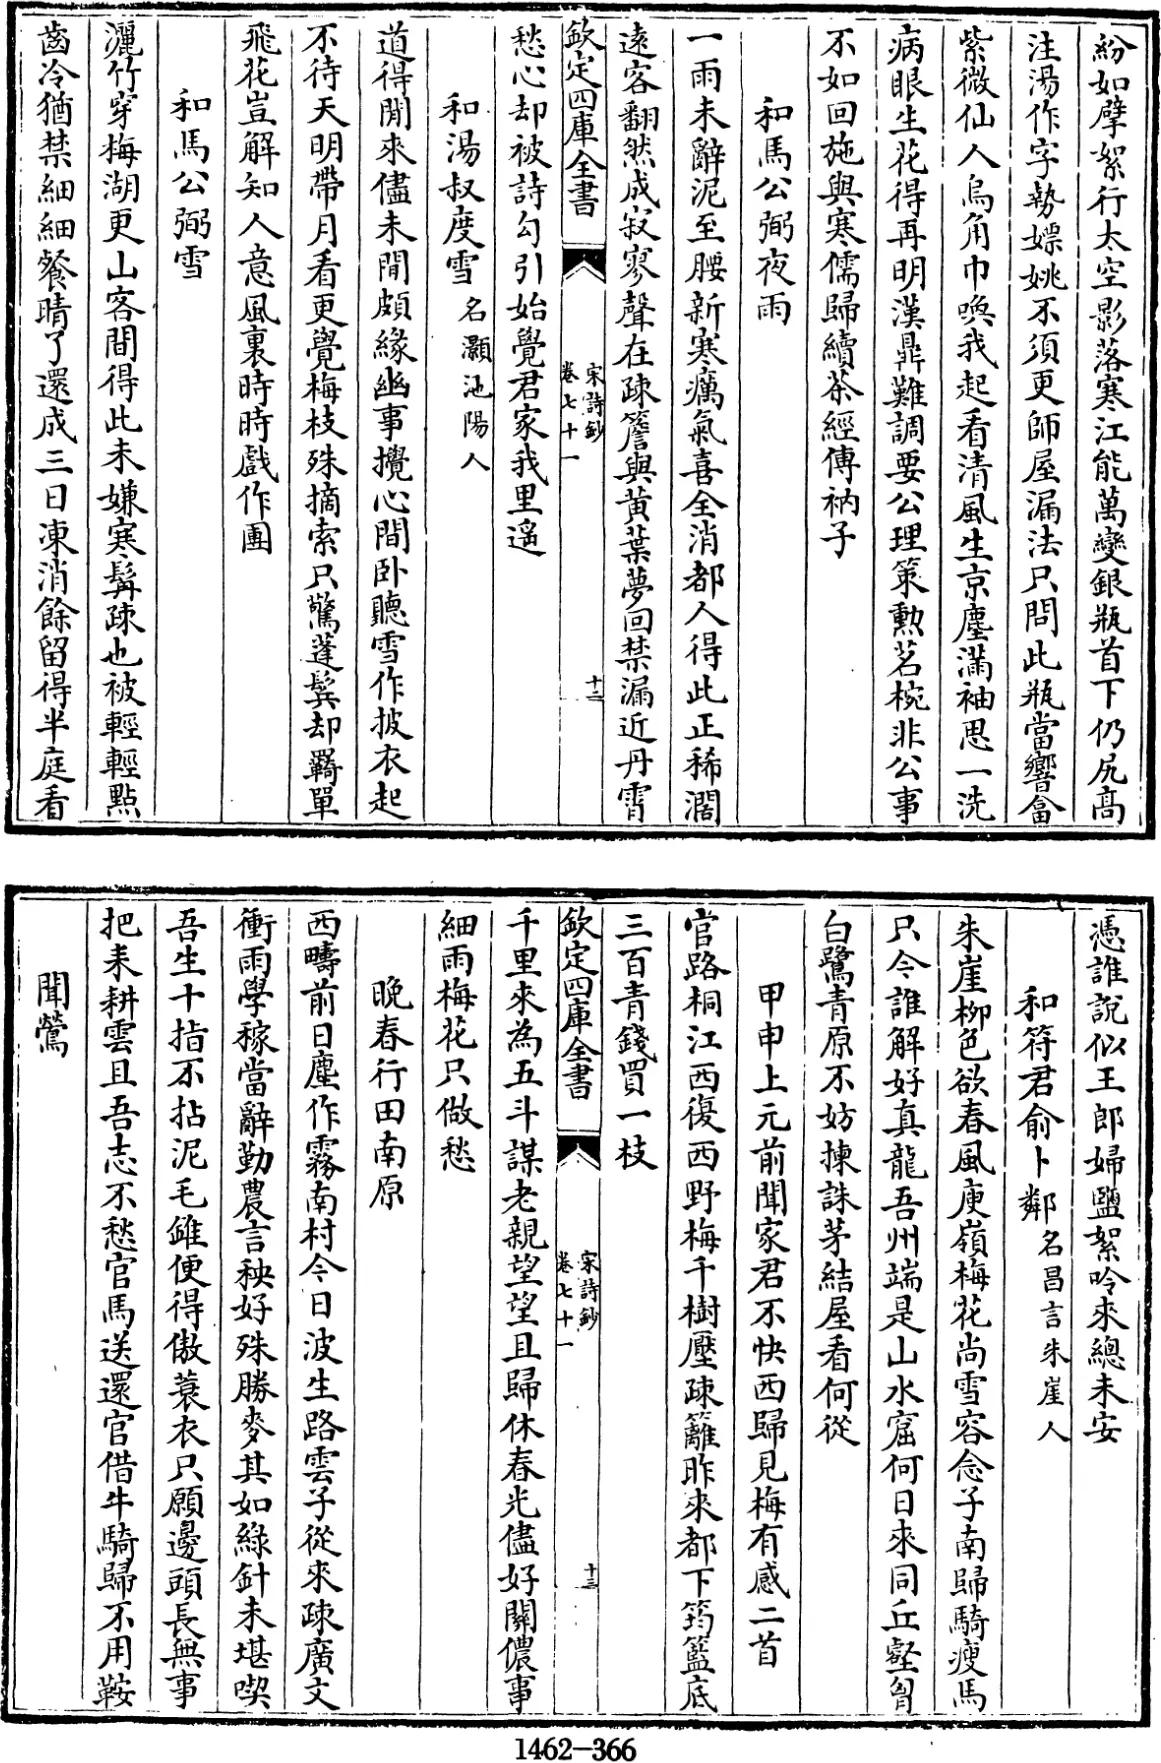 紛如擘絮行太空影落寒江能萬變銀瓶首下仍尻高
注湯作字勢嫖姚不須更師屋漏法只問此瓶當響畣
紫微仙人烏角巾喚我起看清風生京塵滿袖思一洗
病眼生花得再明漢鼎難調要公理策勲茗椀非公事
不如回施與寒儒歸續茶經傅衲子
和馬公弼夜雨
一雨未辭泥至腰新寒癘氣喜全消都人得此正稀濶
遠客翻然成寂寥聲在疎簷與黃葉夢回禁漏近丹霄
欽定四庫全書
宋詩鈔
卷七十一
十二
愁心却被詩勾引始覺君家我里遥
和湯叔度雪名灝池陽人
道得閒來儘未閒頗緣幽事攪心間卧聽雪作披衣起
不待天明帶月看更覺梅枝殊摘索只驚蓬鬂却羇單
飛花豈解知人意風裏時時戲作團
和馬公弼雪
灑竹穿梅湖更山客間得此未嫌寒髯疎也被輕輕點
齒冷猶禁細細餐晴了還成三日凍消餘留得半庭看
憑誰説似王郎婦鹽絮吟來總未安
和符君俞卜鄰名昌言朱崖人
朱崖栁色欲春風庾嶺梅花尚雪容念子南歸騎瘦馬
只今誰解好真龍吾州端是山水窟何日來同丘壑胷
白鷺青原不妨揀誅茅結屋看何從
甲申上元前聞家君不快西歸見梅有感二首
官路桐江西復西野梅千樹壓疎籬昨來都下筠籃底
三百青錢買一枝
欽定四庫全書
宋詩鈔
卷七十一
十三
千里來為五斗謀老親望望且歸休春光儘好關儂事
細雨梅花只做愁
晩春行田南原
西疇前日塵作霧南村今日波生路雲子從來疎廣文
衝雨學稼當辭勤農言秧好殊勝麥其如綠針未堪喫
吾生十指不拈泥毛錐便得傲蓑衣只願邊頭長無事
把耒耕雲且吾志不愁官馬送還官借牛騎歸不用鞍
聞鶯
1462-366